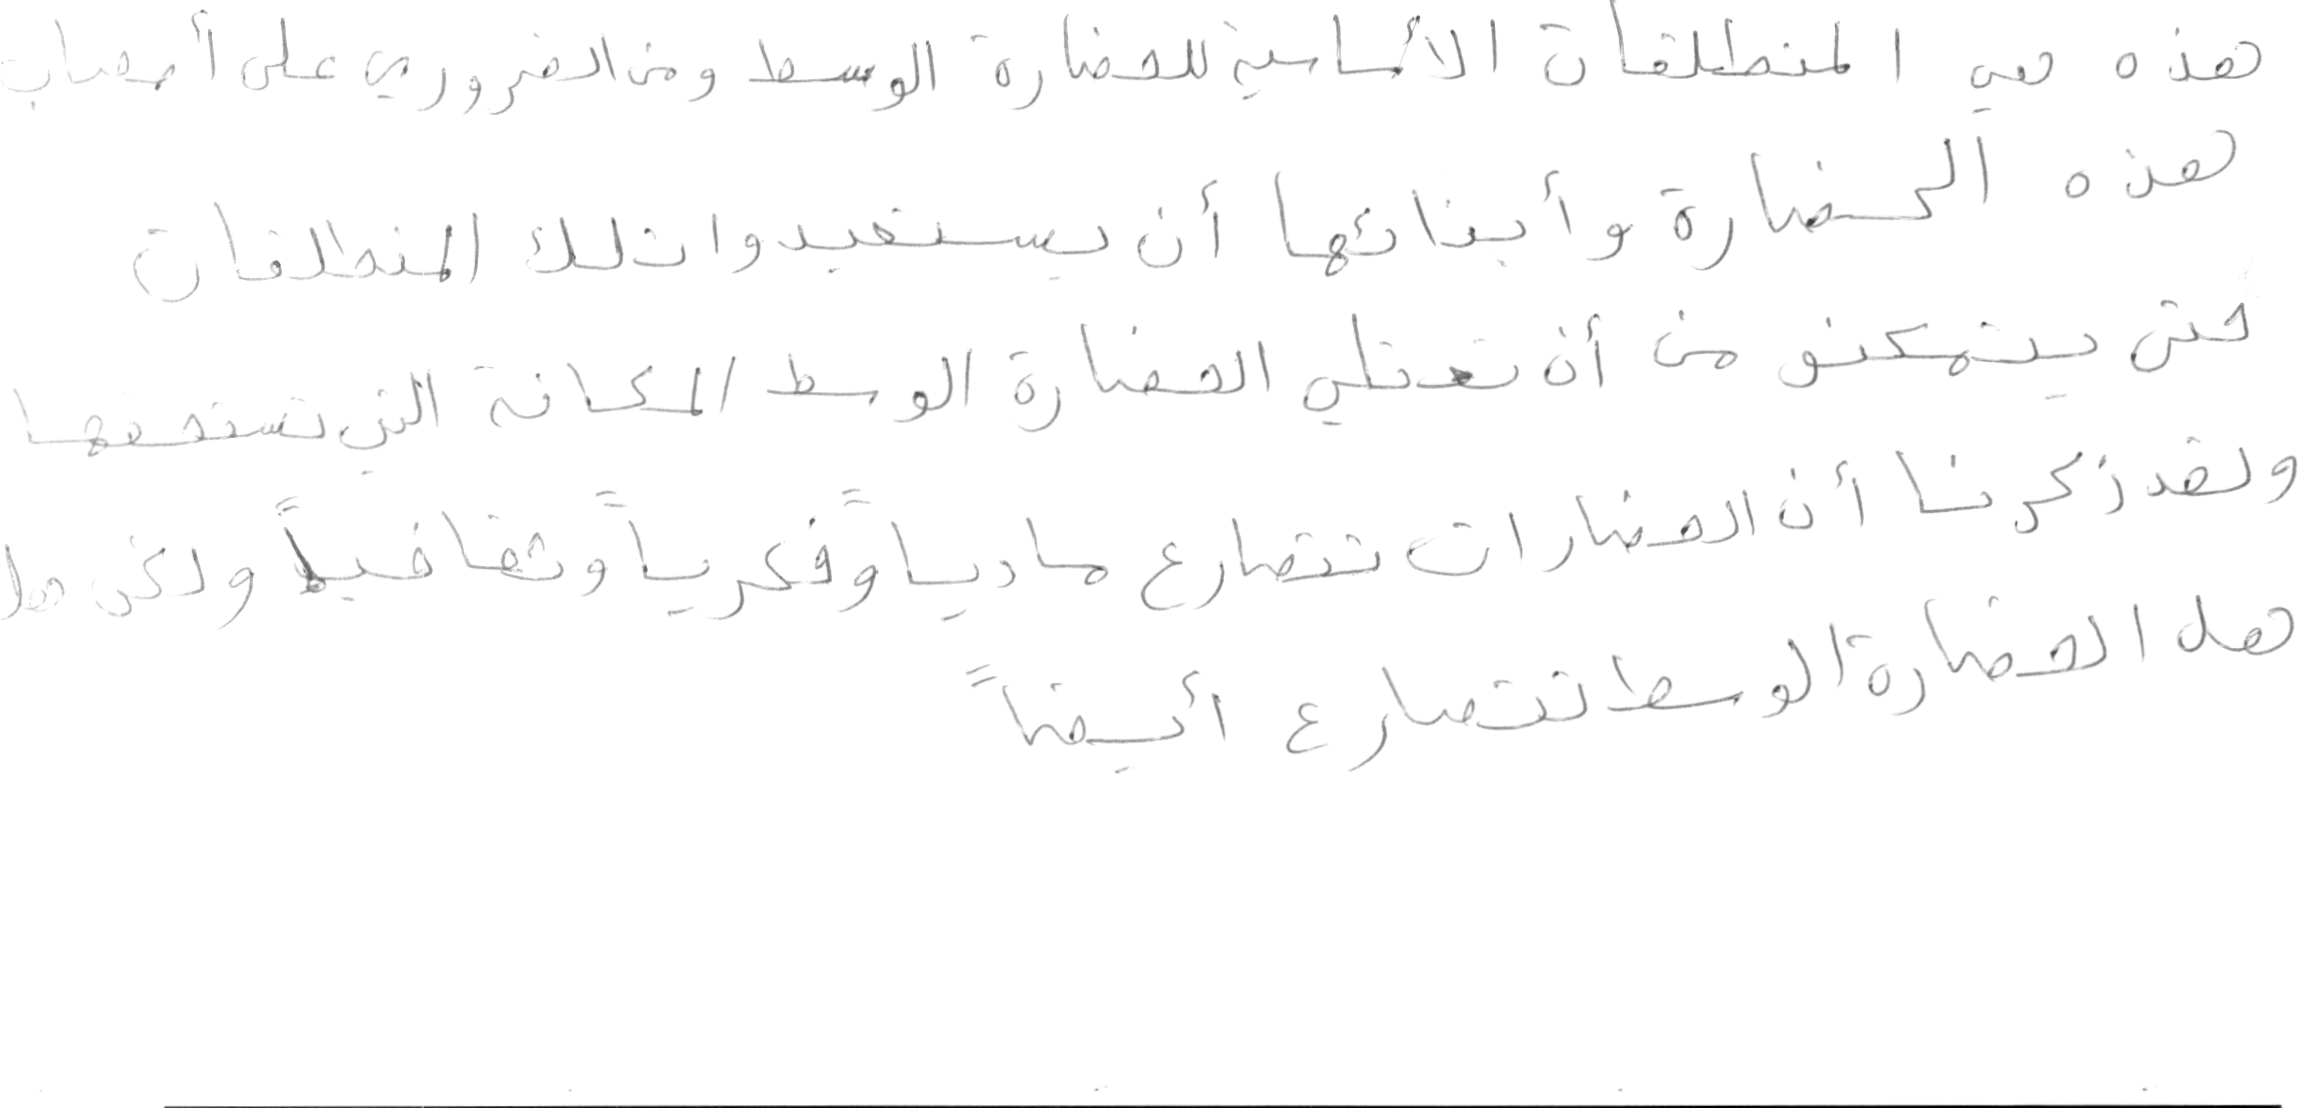 هذه هي المنطلقات الأساسية للحضارة الوسط ومن الضروري على أصحاب
هذه الحضارة وأبنائها أن يستفيدوا تلك المنطلقات
حتى يتمكنو من أن تعتلي الحضارة الوسط المكانة التي تستحقها
ولقد ذكرنا أن الحضارات تتصارع مادياً وفكرياً وثقافياً ولكن هل
هل الحضارة الوسط تتصارع أيضاً